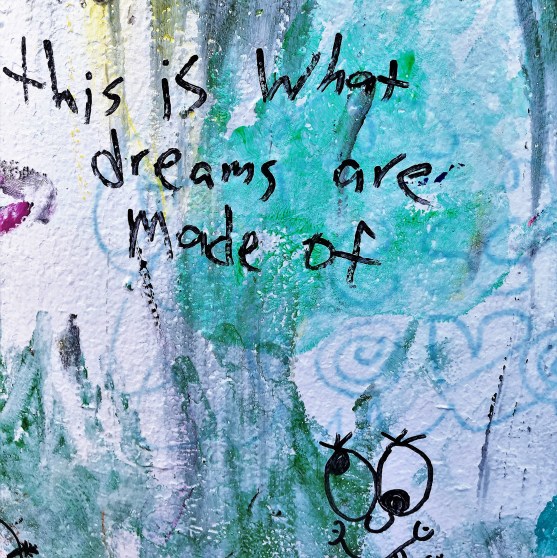 this is what
dreams are
made of